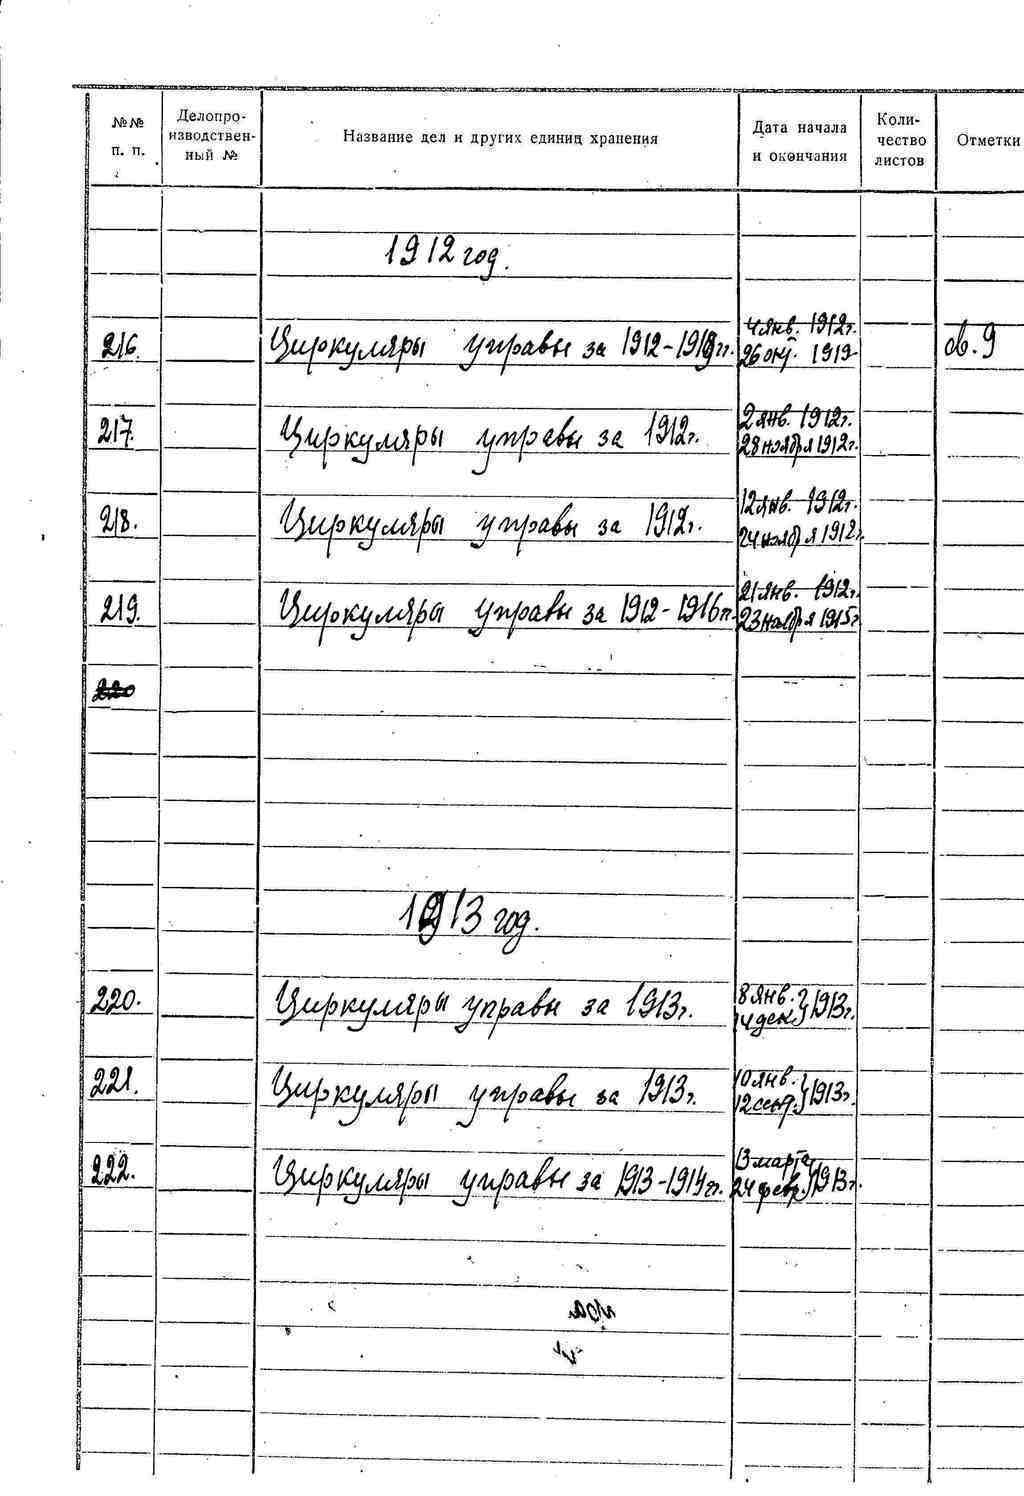 №№ п. п. Делопроизводственный № Название дел и других единиц хранения Дата начала и окончания Количество листов Отметки
1912 год.
216. Циркуляры управы за 1912-1919 гг. 4 янв. 1912г. 26 окт. 1919 св. 9
217. Циркуляры управы за 1912г. 2 янв. 1912г. 28 ноября 1912г.
218. Циркуляры управы за 1912г. 12 янв. 1912г. 24 ноября 1912г.
219. Циркуляры управы за 1912-1916 гг. 21 янв. 1912г. 23 ноября 1915г.
220
1913 год.
220. Циркуляры управы за 1913г. 8 янв. 14 дек. 1913г.
221. Циркуляры управы за 1913г. 10 янв. 12 сент. 1913г.
222. Циркуляры управы за 1913-1914 гг. 13 марта 24 февр. 1913г.